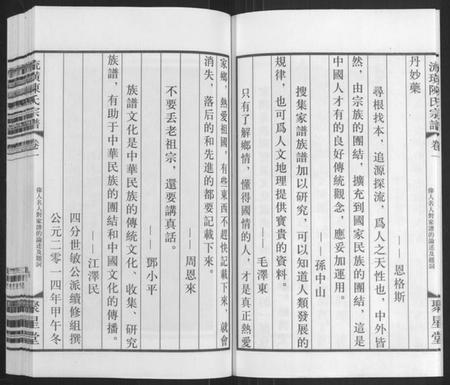 海璜陳氏宗譜
卷一
偉人名人對家譜的論述及題詞
聚星堂
丹妙藥
——恩格斯
尋根找本，追源探流，爲人之天性也，中外皆
然，由宗族的團結，擴充到國家民族的團結，這是
中國人才有的良好傳統觀念，應妥加運用。
——孫中山
搜集家譜族譜加以研究，可以知道人類發展的
規律，也可爲人文地理提供寶貴的資料。
——毛澤東
只有了解鄉情，懂得國情的人，才是真正熱愛
家鄉，熱愛祖國，有些東西不趕快記載下來，就會
消失，落后的和先進的都要記載下來。
——周恩來
不要丟老祖宗，還要講真話。
——鄧小平
族譜文化是中華民族的傳統文化、收集、研究
族譜，有助于中華民族的團結和中國文化的傳播。
——江澤民
四分世敏公派續修組撰
公元二零一四年甲午冬
陳氏宗譜
卷一
偉人名人對家譜的論述及題詞
聚星堂